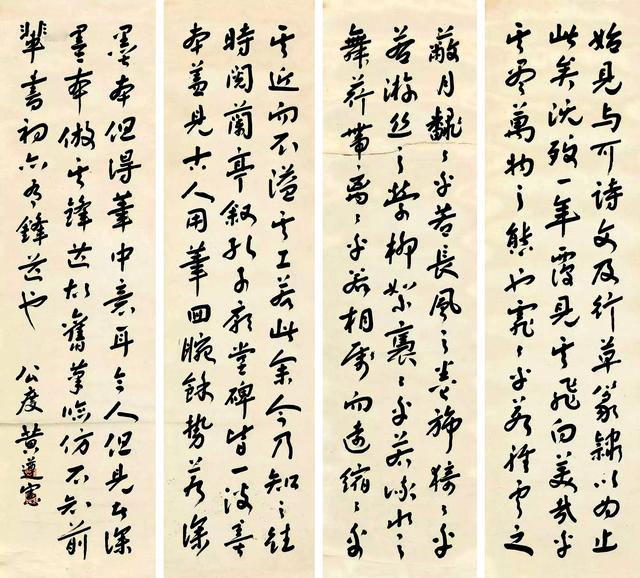 始見与可詩文及行草篆隸以為止
此矣沈歿一年覆見其飛白美哉乎
其盡萬物之態也霏霏乎若輕雲之
蔽月翻翻乎若長風之卷旆猗猗乎
若游絲之縈柳絮裊裊乎若流水之
舞荇帶离离乎若相屬而遠縮縮乎
其近而不溢其工若此余今乃知之往
時閱蘭亭敘孔子廟堂碑皆一波墨
本蓋見古人用筆回腕餘勢若深
墨本但得筆中意耳今人但見其深
墨本倣其鋒芒故舊筆臨仿不知前
輩書初亦有鋒芒也 公度黃遵憲